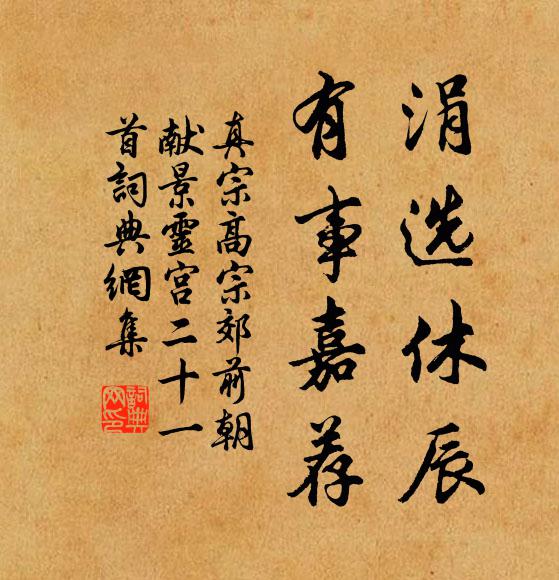 涓选休辰
有事嘉荐
真宗高宗郊前朝
献景靈宫二十一
首詞典網集
詞典
网印